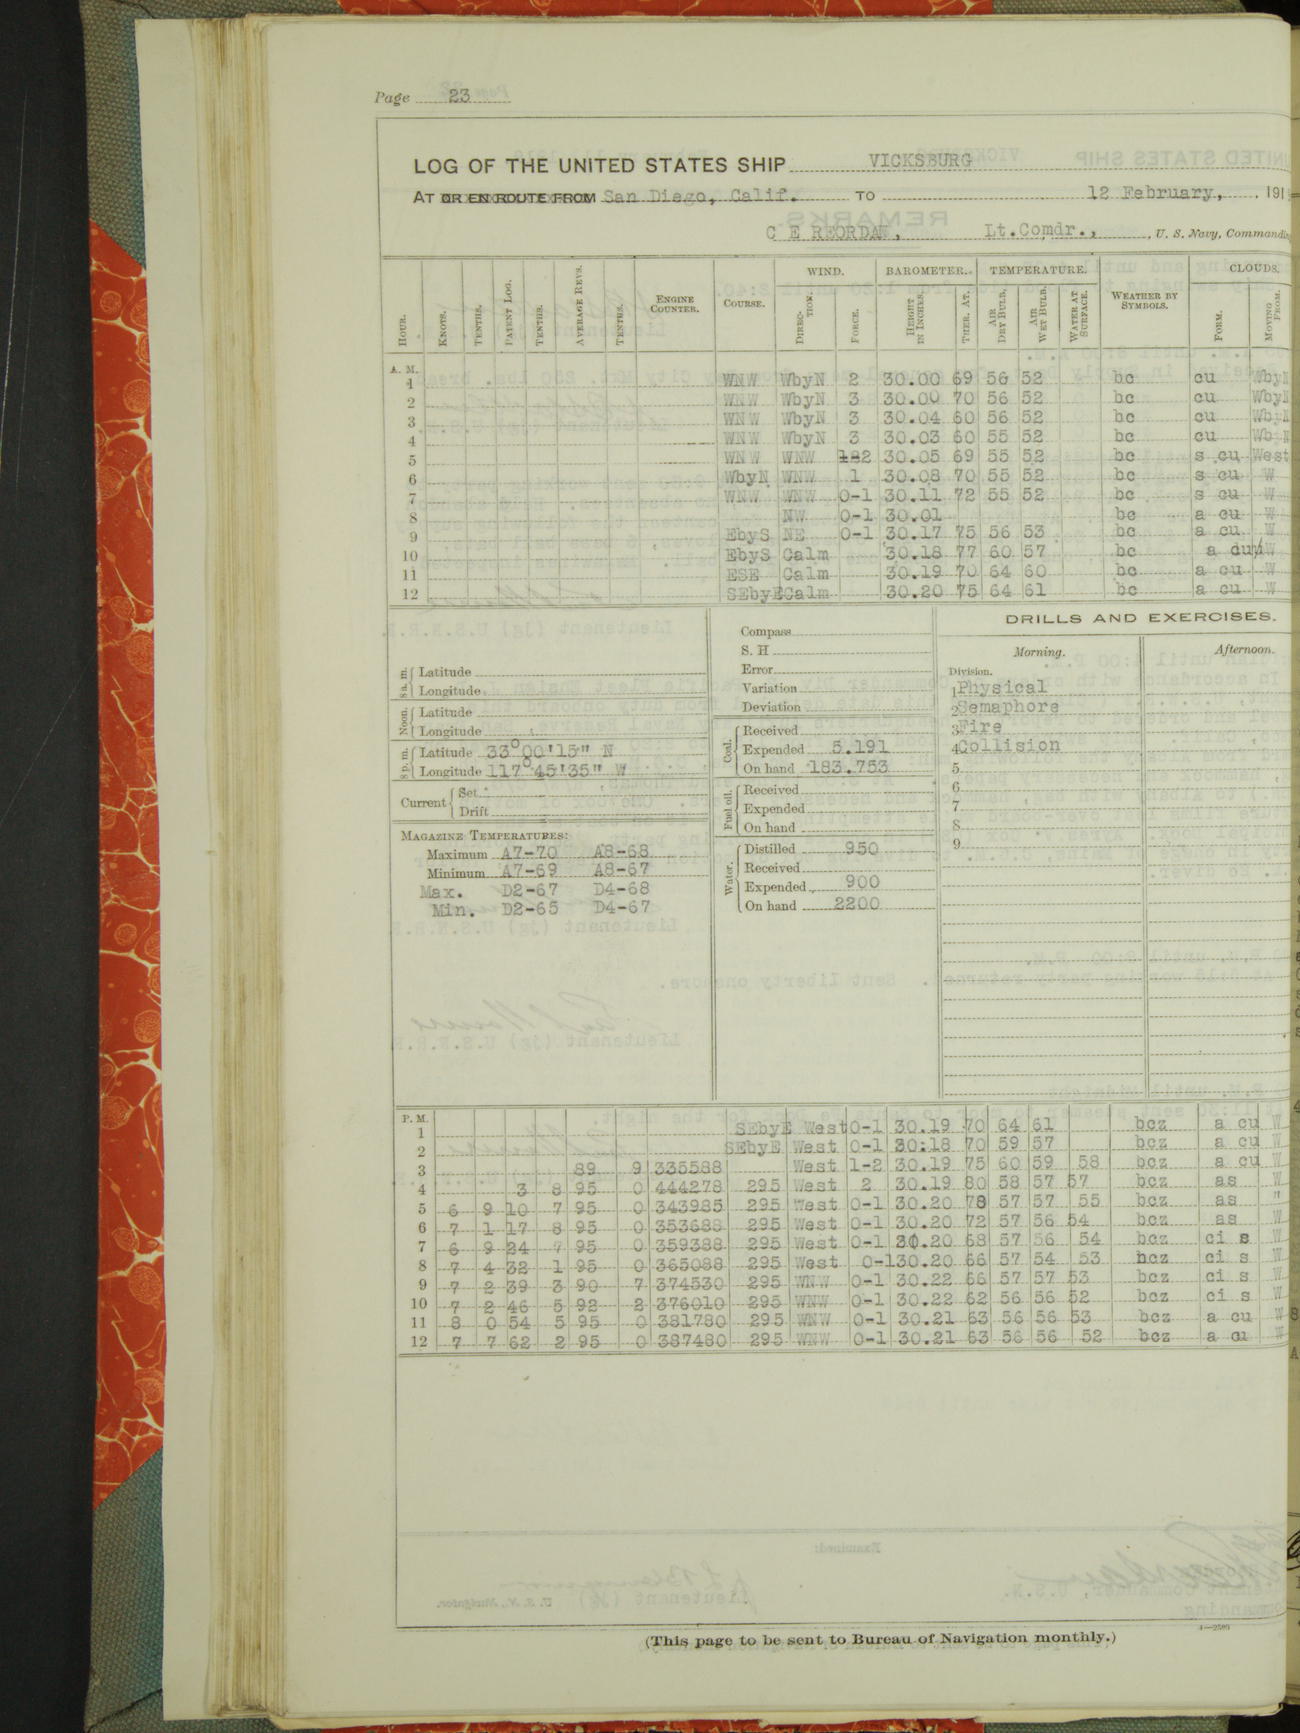 Page 23
LOG OF THE UNITED STATES SHIP VICKSBURG
AT OR EN ROUTE FROM San Diego, Calif. TO 12 February, 191
C E REORDAN, Lt.Comdr., U. S. Navy, Commanding
WIND. BAROMETER. TEMPERATURE. CLOUDS.
HOUR. KNOTS. TENTHS. PATENT LOG. TENTHS. AVERAGE REVS. TENTHS. ENGINE COUNTER. COURSE. DIRECTION. FORCE. HEIGHT IN INCHES. THER. AT. AIR DRY BULB. AIR WET BULB. WATER AT SURFACE. WEATHER BY SYMBOLS. FORM. MOVING FROM.
A. M.
1 WNW WbyN 2 30.00 69 56 52 bc cu WbyN
2 WNW WbyN 3 30.00 70 56 52 bc cu WbyN
3 WNW WbyN 3 30.04 60 56 52 bc cu WbyN
4 WNW WbyN 3 30.03 60 55 52 bc cu
5 WNW WNW 1&2 30.05 69 55 52 bc s cu West
6 WbyN WNW 1 30.08 70 55 52 bc s cu W
7 WNW WNW 0-1 30.11 72 55 52 bc s cu W
8 NW 0-1 30.01 bc a cu W
9 EbyS NE 0-1 30.17 75 56 53 bc a cu W
10 EbyS Calm 30.18 77 60 57 bc a cu W
11 ESE Calm 30.19 70 64 60 bc a cu W
12 SEbyE Calm 30.20 75 64 61 bc a cu W
8 a. m. Latitude
Longitude
Noon. Latitude
Longitude
8 p. m. Latitude 33°00'15" N
Longitude 117°45'35" W
Current Set
Drift
MAGAZINE TEMPERATURES:
Maximum A7-70 A8-68
Minimum A7-69 A8-67
Max. D2-67 D4-68
Min. D2-65 D4-67
Compass
S. H
Error
Variation
Deviation
Coal. Received
Expended 5.191
On hand 183.753
Fuel oil. Received
Expended
On hand
Water. Distilled 950
Received
Expended 900
On hand 2200
DRILLS AND EXERCISES.
Morning. Afternoon.
Division.
1 Physical
2 Semaphore
3 Fire
4 Collision
5
6
7
8
9
P. M.
1 SEbyE West 0-1 30.19 70 64 61 bcz a cu W
2 SEbyE West 0-1 30:18 70 59 57 bcz a cu W
3 89 9 335588 West 1-2 30.19 75 60 59 58 bcz a cu W
4 3 8 95 0 444278 295 West 2 30.19 80 58 57 57 bcz as W
5 6 9 10 7 95 0 343985 295 West 0-1 30.20 78 57 57 55 bcz as "
6 7 1 17 8 95 0 353688 295 West 0-1 30.20 72 57 56 54 bcz as W
7 6 9 24 7 95 0 359388 295 West 0-1 30.20 68 57 56 54 bcz ci s W
8 7 4 32 1 95 0 365088 295 West 0-1 30.20 66 57 54 53 bcz ci s W
9 7 2 39 3 90 7 374530 295 WNW 0-1 30.22 66 57 57 53 bcz ci s W
10 7 2 46 5 92 2 376010 295 WNW 0-1 30.22 62 56 56 52 bcz ci s W
11 8 0 54 5 95 0 381780 295 WNW 0-1 30.21 63 56 56 53 bcz a cu W
12 7 7 62 2 95 0 387480 295 WNW 0-1 30.21 63 56 56 52 bcz a cu W
4—2589
(This page to be sent to Bureau of Navigation monthly.)